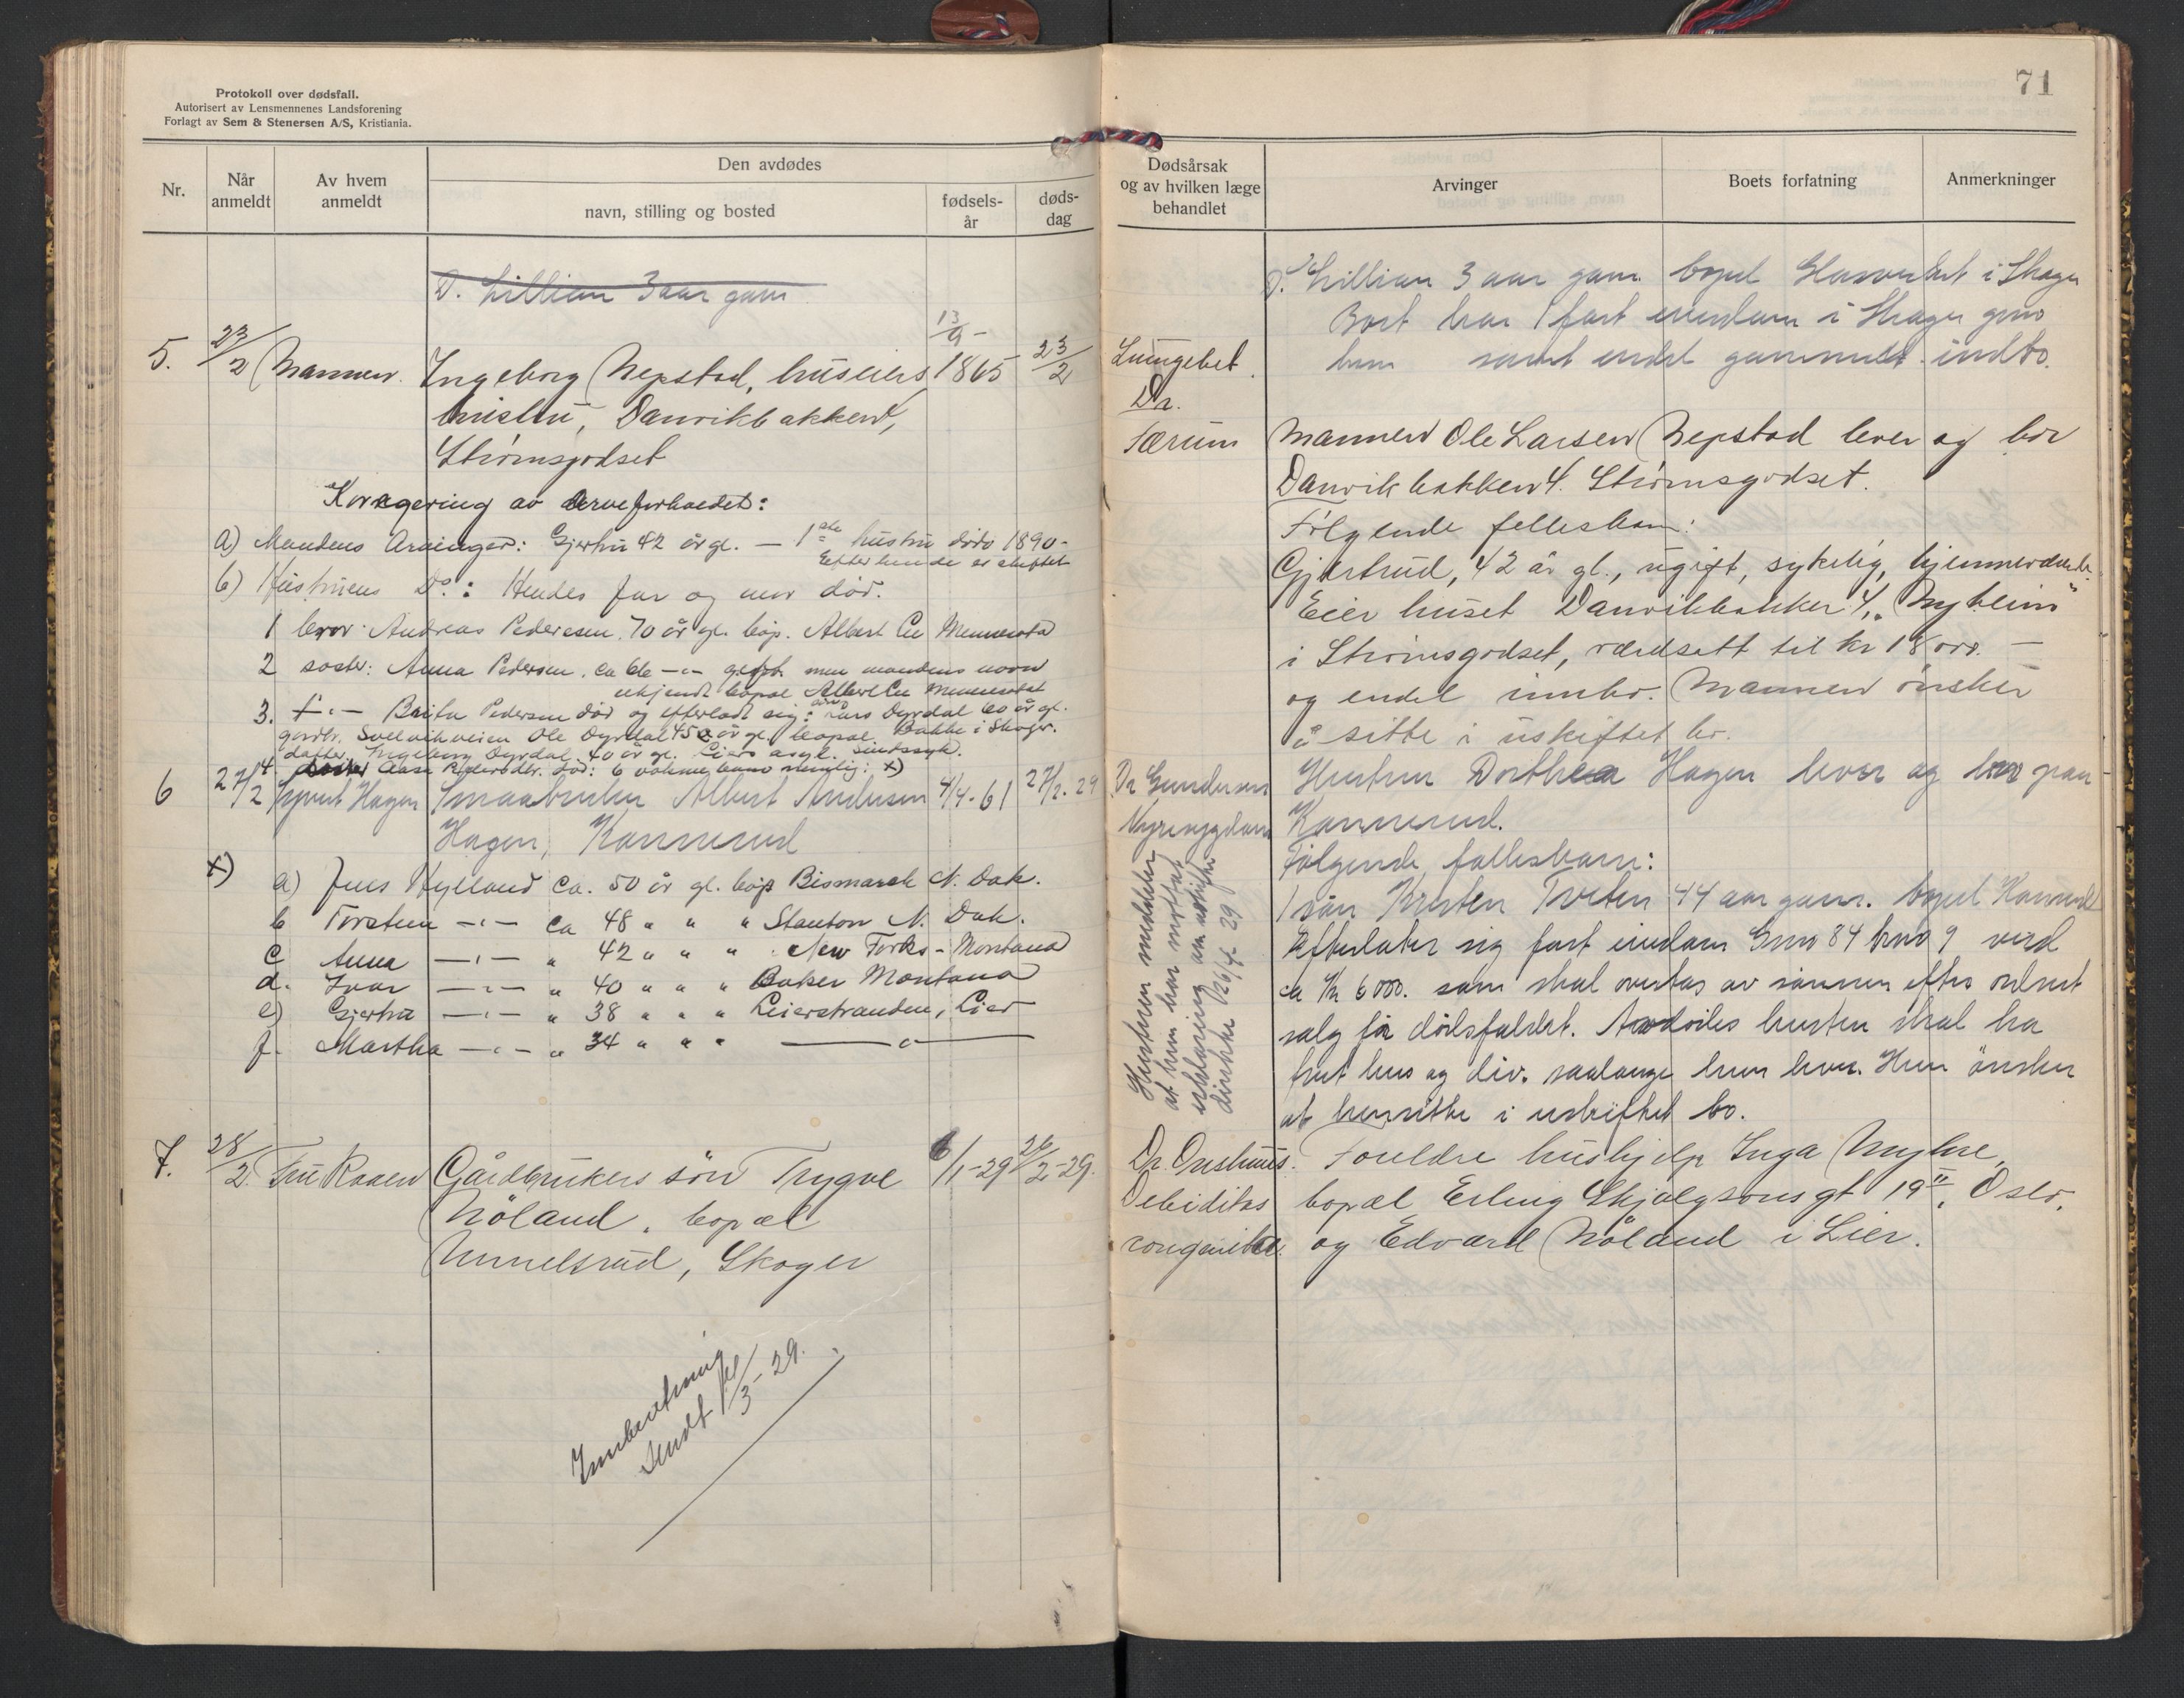 Protokoll over dødsfall.
Autorisert av Lensmennenes Landsforening
Forlagt av Sem & Stenersen A/S, Kristiania.
Nr.
Når anmeldt
Av hvem anmeldt
Den avdødes
navn, stilling og bosted
fødsels-år
døds-dag
D. Lillian 3 aar gam
5. 23/2 Mannen. Ingeborg Nepstad, huseiers 13/9 - 1865 23/2
hustru, Danvikbakken 4,
Strømsgodset
Korrigering av arveforholdet:
a) Mandens Arvinger: Gjertru 42 år gl. — 1ste hustru døde 1890 -
Efter hende er skiftet
b) Hustruens Do: Hendes far og mor död.
1 bror: Andreas Pedersen, 70 år gl. bop. Albert Lee Mennesota
2 søster: Anna Pedersen, ca 66 —"— gift men mandens navn
ukjendt bopæl Albert Lee Mennesota
3. —"— Brita Pedersen död og efterladt sig: Lars Dyrdal 60 år gl.
gårdbr. Svelvikveien Ole Dyrdal 45 år gl. bopæl Bakke i Skoger.
datter Ingeborg Dyrdal 40 år gl. Liers asyl. Sindssyk.
4. Aase Pedersdtr. död: 6 voksne barn nemlig: x)
6 27/2 Syvert Hagen Smaabruker Albert Andersen 4/4-61 27/2-29
Hagen, Konnerud
x) a) Jens Hylland ca. 50 år gl. bop Bismarck N. Dak.
b Torsten —"— ca 48 " " " Stanton N. Dak.
c Anna —"— " 42 " " " New Forks - Montana
d. Ivar —"— " 40 " " " Baker Montana
e) Gjertru —"— " 38 " " " Leierstranden, Lier
f. Martha —"— " 34 " " " —"—
7. 28/2 Fru Raaen Gårdbrukers sön Trygve 6/1-29 26/2-29.
Nöland, bopæl
Unnelsrud, Skoger
Innberetning
sendt 1/3-29.
71
Dødsårsak og av hvilken læge behandlet
Arvinger
Boets forfatning
Anmerkninger
D. Lillian 3 aar gam. bopæl Glassverket i Skoger
Boet har fast eiendom i Skoger gno
bno samt endel gammelt indbo.
Lungebet.
Dr.
Færum
Mannen Ole Larsen Nepstad lever og bor
Danvikbakken 4. Strömsgodset.
Fölgende fellesbarn:
Gjertrud, 42 år gl., ugift, sykelig, hjemmeværende.
Eier huset Danvikbakken 4, "Nyheim"
i Strömsgodset, verdsatt til kr 18000. —
og endel innbo. Mannen ønsker
å sitte i uskiftet bo.
Dr Gundersen
Hustrun Dorthea Hagen lever og bor paa
Konnerud.
Følgende fellesbarn:
1 sön Kristen Tveten 44 aar gam. bopæl Konnerud
Efterlater sig fast eiendom Gno 84 bno 9 verd
ca Kr 6000. som skal overtas av sönnen efter ordnet
salg för dödsfaldet. Avdödes hustru skal ha
frit hus og div. saalange hun lever. Hun önsker
at hensitte i uskiftet bo.
Hustruen meddeler
at hun har mottat
erklæring om uskiftet
26/4 29
Dr. Onshuus.
Debiditas
congenita
Foreldre hushjelp Inga Myhre,
bopæl Erling Skjalgsonsgt 19 II, Oslo,
og Edvard Nöland i Lier.